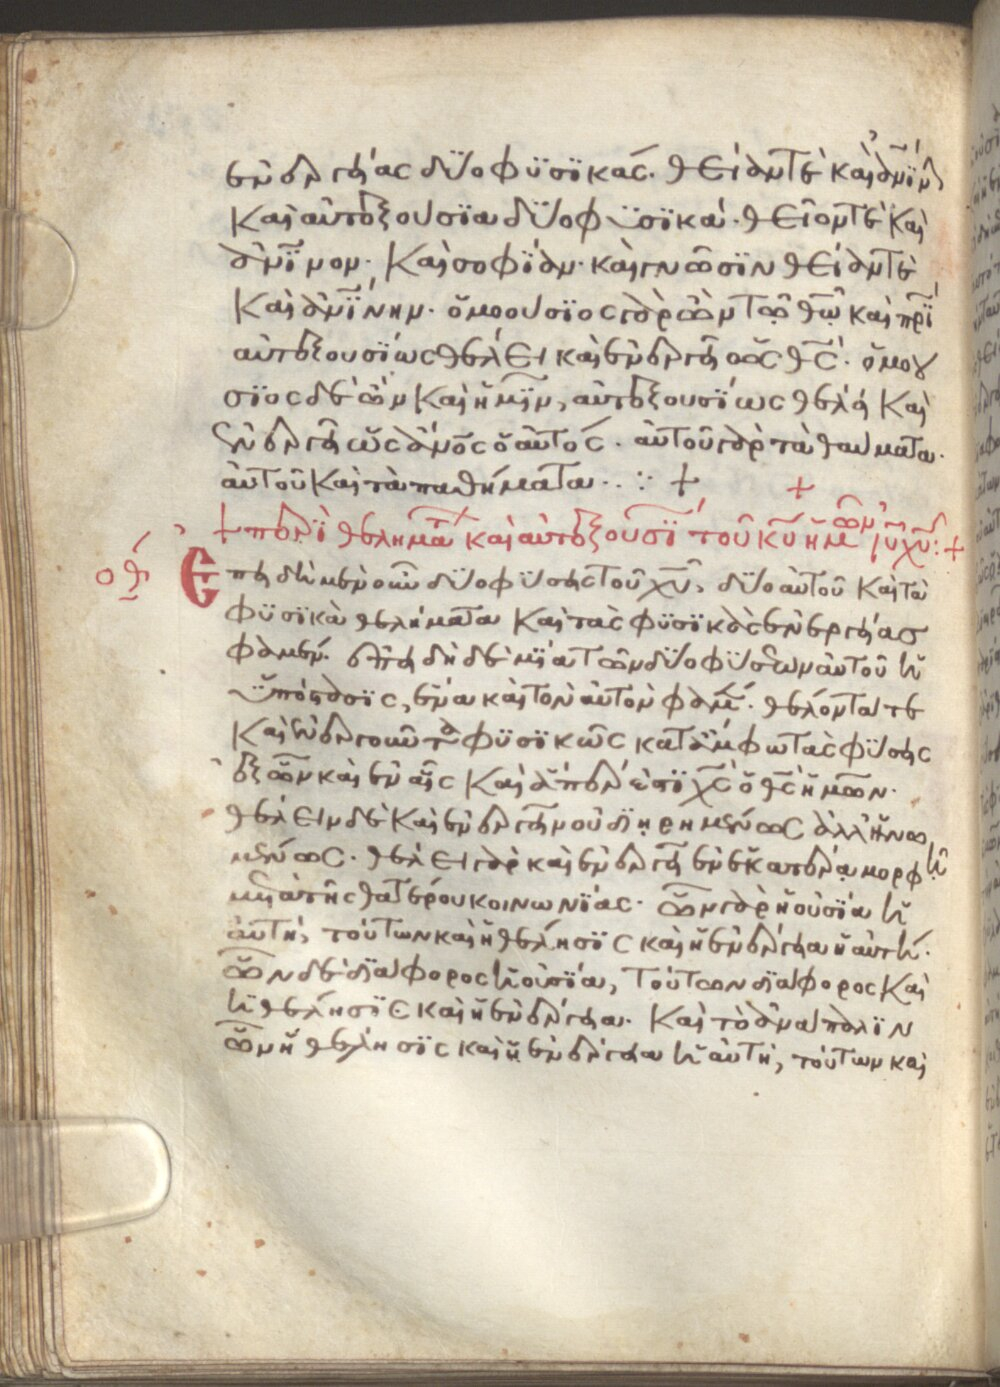 ἐνεργείας δύο φυσικάς· θείαν τὲ καὶ ἀν̅ίν
καὶ αὐτεξούσϊα δύο φϋσϊκά· θεῖον τὲ καὶ
ἀν̅ϊνον· καὶ σοφΐαν· καὶ γνῶσϊν θείαν τὲ
καὶ ἀν̅ΐνην· ὁμοούσϊος γὰρ ὢν τῶ θω̅ καὶ πρϊ̅
αὐτεξουσΐως θέλει καὶ ἐνεργεῖ ὡς θς̅· ὁμοου
σϊος δὲ ὢν καὶ ἡμῖν, αὐτεξουσΐως θέλει καὶ
ἐνεργεῖ ὡς ἀν̅ος ὁ αὐτός· αὐτοῦ γὰρ τὰ θαύματα·
αὐτοῦ καὶ τὰ παθήματα· .⁚ +
+ περὶ θελημάτ καὶ αὐτεξουσΐ τοῦ κυ̅ ἡμῶν ιυ̅ χυ̅: +
οθ Ἐπεὶ δὲ μὲν οὖν δύο φύσεις τοῦ χυ̅, δύο αὐτοῦ καὶ τὰ
φϋσϊκὰ θελήματα καὶ τὰς φϋσϊκὰς ἐνεργείασ
φαμέν· ἐπεὶ δὴ δὲ μΐα τῶν δύο φύσεων αὐτοῦ ἡ
ϋπόστασϊς, ἕνα καὶ τὸν αὐτόν φαμεν· θέλοντά τε
καὶ ἐνεργοῦντα φϋσϊκῶς κατ' ἄμφω τὰς φύσεις
ἐξ ὧν καὶ ἐν αἷς καὶ ἅπερ ἐστϊ χς̅ ὁ θς̅ ἡμῶν·
θέλειν δὲ καὶ ἐνεργεῖν οὐ διῃρημένως ἀλλ' ἡνω
μένως· θέλει γὰρ καὶ ἐνεργεῖ ἐν ἑκατέρᾳ μορφῇ
μετὰ τῆς θατέρου κοινωνΐας· ὧν γὰρ ἡ οὐσΐα ἡ
αὐτή, τούτων καὶ ἡ θέλησϊς καὶ ἡ ἐνέργεια ἡ αὐτή·
ὧν δὲ διάφορος ἡ οὐσΐα, τούτων διάφορος καὶ
ἡ θέλησϊς καὶ ἡ ἐνέργεια· καὶ τὸ ἀνάπαλϊν
ὧν ἡ θέλησϊς καὶ ἡ ἐνέργεια ἡ αὐτή, τούτων καὶ